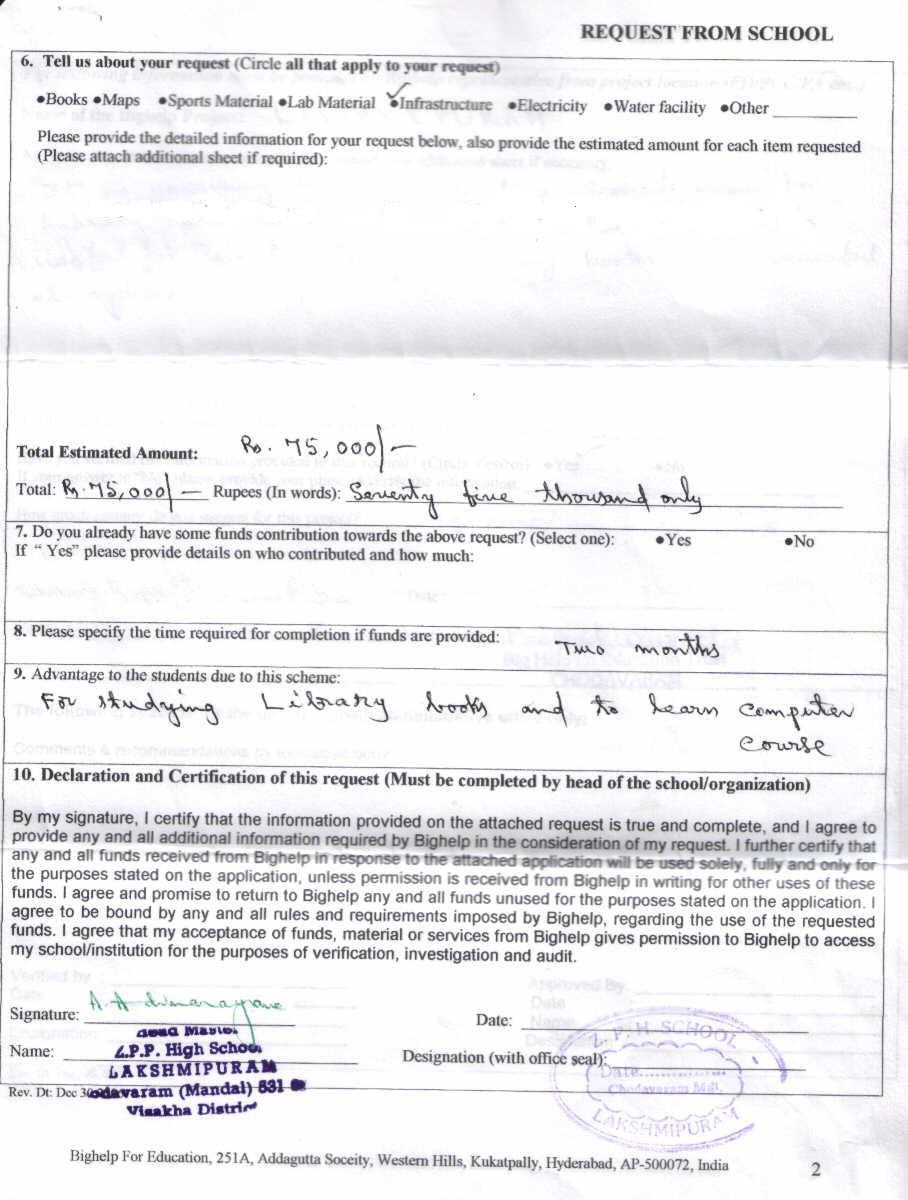 REQUEST FROM SCHOOL
6. Tell us about your request (Circle all that apply to your request)
•Books •Maps •Sports Material •Lab Material •Infrastructure •Electricity •Water facility •Other
Please provide the detailed information for your request below, also provide the estimated amount for each item requested
(Please attach additional sheet if required):
Total Estimated Amount: Rs. 75,000/-
Total: Rs. 75,000/- Rupees (In words): Seventy five thousand only
7. Do you already have some funds contribution towards the above request? (Select one): •Yes •No
If “ Yes” please provide details on who contributed and how much:
8. Please specify the time required for completion if funds are provided: Two months
9. Advantage to the students due to this scheme:
For studying Library books and to learn computer
course
10. Declaration and Certification of this request (Must be completed by head of the school/organization)
By my signature, I certify that the information provided on the attached request is true and complete, and I agree to
provide any and all additional information required by Bighelp in the consideration of my request. I further certify that
any and all funds received from Bighelp in response to the attached application will be used solely, fully and only for
the purposes stated on the application, unless permission is received from Bighelp in writing for other uses of these
funds. I agree and promise to return to Bighelp any and all funds unused for the purposes stated on the application. I
agree to be bound by any and all rules and requirements imposed by Bighelp, regarding the use of the requested
funds. I agree that my acceptance of funds, material or services from Bighelp gives permission to Bighelp to access
my school/institution for the purposes of verification, investigation and audit.
Signature:
Date:
Head Master
Name: Z.P.P. High School
Designation (with office seal):
LAKSHMIPURAM
Z. P. H SCHOOL
Date
Chodavaram Mdl.
LAKSHMIPURAM
Rev. Dt: Dec (Mandal) 531
Visakha District
Bighelp For Education, 251A, Addagutta Soceity, Western Hills, Kukatpally, Hyderabad, AP-500072, India
2